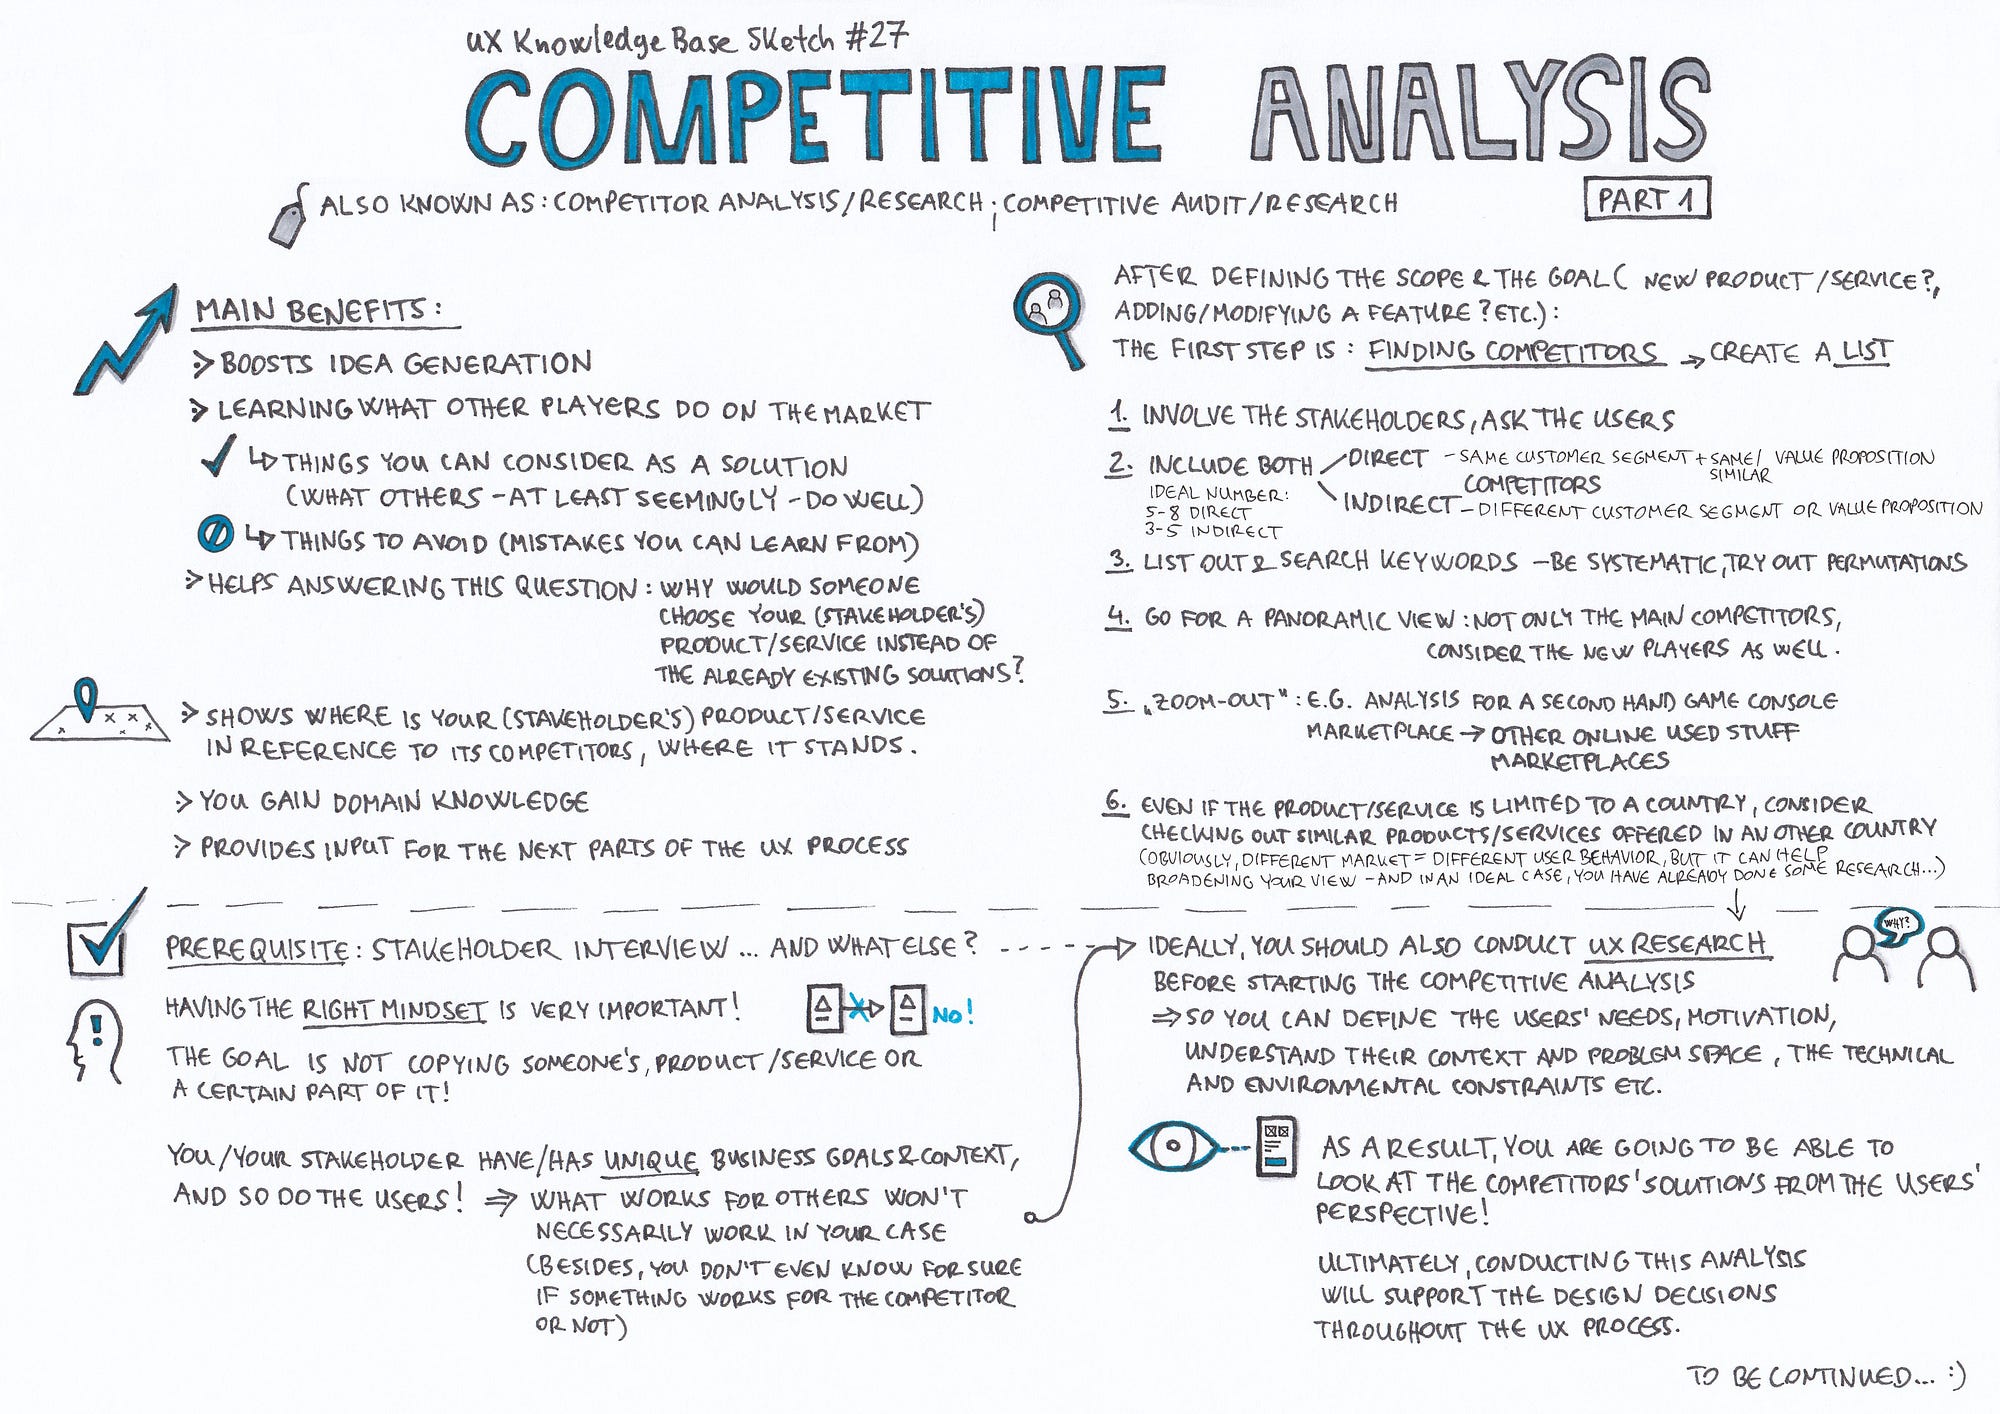 UX Knowledge Base Sketch #27
COMPETITIVE ANALYSIS
ALSO KNOWN AS: COMPETITOR ANALYSIS/RESEARCH; COMPETITIVE AUDIT/RESEARCH
PART 1
MAIN BENEFITS:
BOOSTS IDEA GENERATION
LEARNING WHAT OTHER PLAYERS DO ON THE MARKET
THINGS YOU CAN CONSIDER AS A SOLUTION
(WHAT OTHERS - AT LEAST SEEMINGLY - DO WELL)
THINGS TO AVOID (MISTAKES YOU CAN LEARN FROM)
HELPS ANSWERING THIS QUESTION: WHY WOULD SOMEONE
CHOOSE YOUR (STAKEHOLDER'S)
PRODUCT/SERVICE INSTEAD OF
THE ALREADY EXISTING SOLUTIONS?
SHOWS WHERE IS YOUR (STAKEHOLDER'S) PRODUCT/SERVICE
IN REFERENCE TO ITS COMPETITORS, WHERE IT STANDS.
YOU GAIN DOMAIN KNOWLEDGE
PROVIDES INPUT FOR THE NEXT PARTS OF THE UX PROCESS
AFTER DEFINING THE SCOPE & THE GOAL ( NEW PRODUCT/SERVICE?,
ADDING/MODIFYING A FEATURE? ETC.):
THE FIRST STEP IS: FINDING COMPETITORS → CREATE A LIST
1. INVOLVE THE STAKEHOLDERS, ASK THE USERS
2. INCLUDE BOTH DIRECT - SAME CUSTOMER SEGMENT + SAME/ VALUE PROPOSITION
SIMILAR
COMPETITORS
INDIRECT - DIFFERENT CUSTOMER SEGMENT OR VALUE PROPOSITION
IDEAL NUMBER:
5-8 DIRECT
3-5 INDIRECT
3. LIST OUT & SEARCH KEYWORDS - BE SYSTEMATIC, TRY OUT PERMUTATIONS
4. GO FOR A PANORAMIC VIEW: NOT ONLY THE MAIN COMPETITORS,
CONSIDER THE NEW PLAYERS AS WELL.
5. „ZOOM-OUT": E.G. ANALYSIS FOR A SECOND HAND GAME CONSOLE
MARKETPLACE → OTHER ONLINE USED STUFF
MARKETPLACES
6. EVEN IF THE PRODUCT/SERVICE IS LIMITED TO A COUNTRY, CONSIDER
CHECKING OUT SIMILAR PRODUCTS/SERVICES OFFERED IN AN OTHER COUNTRY
(OBVIOUSLY, DIFFERENT MARKET = DIFFERENT USER BEHAVIOR, BUT IT CAN HELP
BROADENING YOUR VIEW - AND IN AN IDEAL CASE, YOU HAVE ALREADY DONE SOME RESEARCH...)
PREREQUISITE: STAKEHOLDER INTERVIEW ... AND WHAT ELSE?
HAVING THE RIGHT MINDSET IS VERY IMPORTANT!
NO!
THE GOAL IS NOT COPYING SOMEONE'S, PRODUCT/SERVICE OR
A CERTAIN PART OF IT!
YOU/YOUR STAKEHOLDER HAVE/HAS UNIQUE BUSINESS GOALS & CONTEXT,
AND SO DO THE USERS! ⇒ WHAT WORKS FOR OTHERS WON'T
NECESSARILY WORK IN YOUR CASE
(BESIDES, YOU DON'T EVEN KNOW FOR SURE
IF SOMETHING WORKS FOR THE COMPETITOR
OR NOT)
IDEALLY, YOU SHOULD ALSO CONDUCT UX RESEARCH
WHY?
BEFORE STARTING THE COMPETITIVE ANALYSIS
⇒ SO YOU CAN DEFINE THE USERS' NEEDS, MOTIVATION,
UNDERSTAND THEIR CONTEXT AND PROBLEM SPACE, THE TECHNICAL
AND ENVIRONMENTAL CONSTRAINTS ETC.
AS A RESULT, YOU ARE GOING TO BE ABLE TO
LOOK AT THE COMPETITORS' SOLUTIONS FROM THE USERS'
PERSPECTIVE!
ULTIMATELY, CONDUCTING THIS ANALYSIS
WILL SUPPORT THE DESIGN DECISIONS
THROUGHOUT THE UX PROCESS.
TO BE CONTINUED... :)